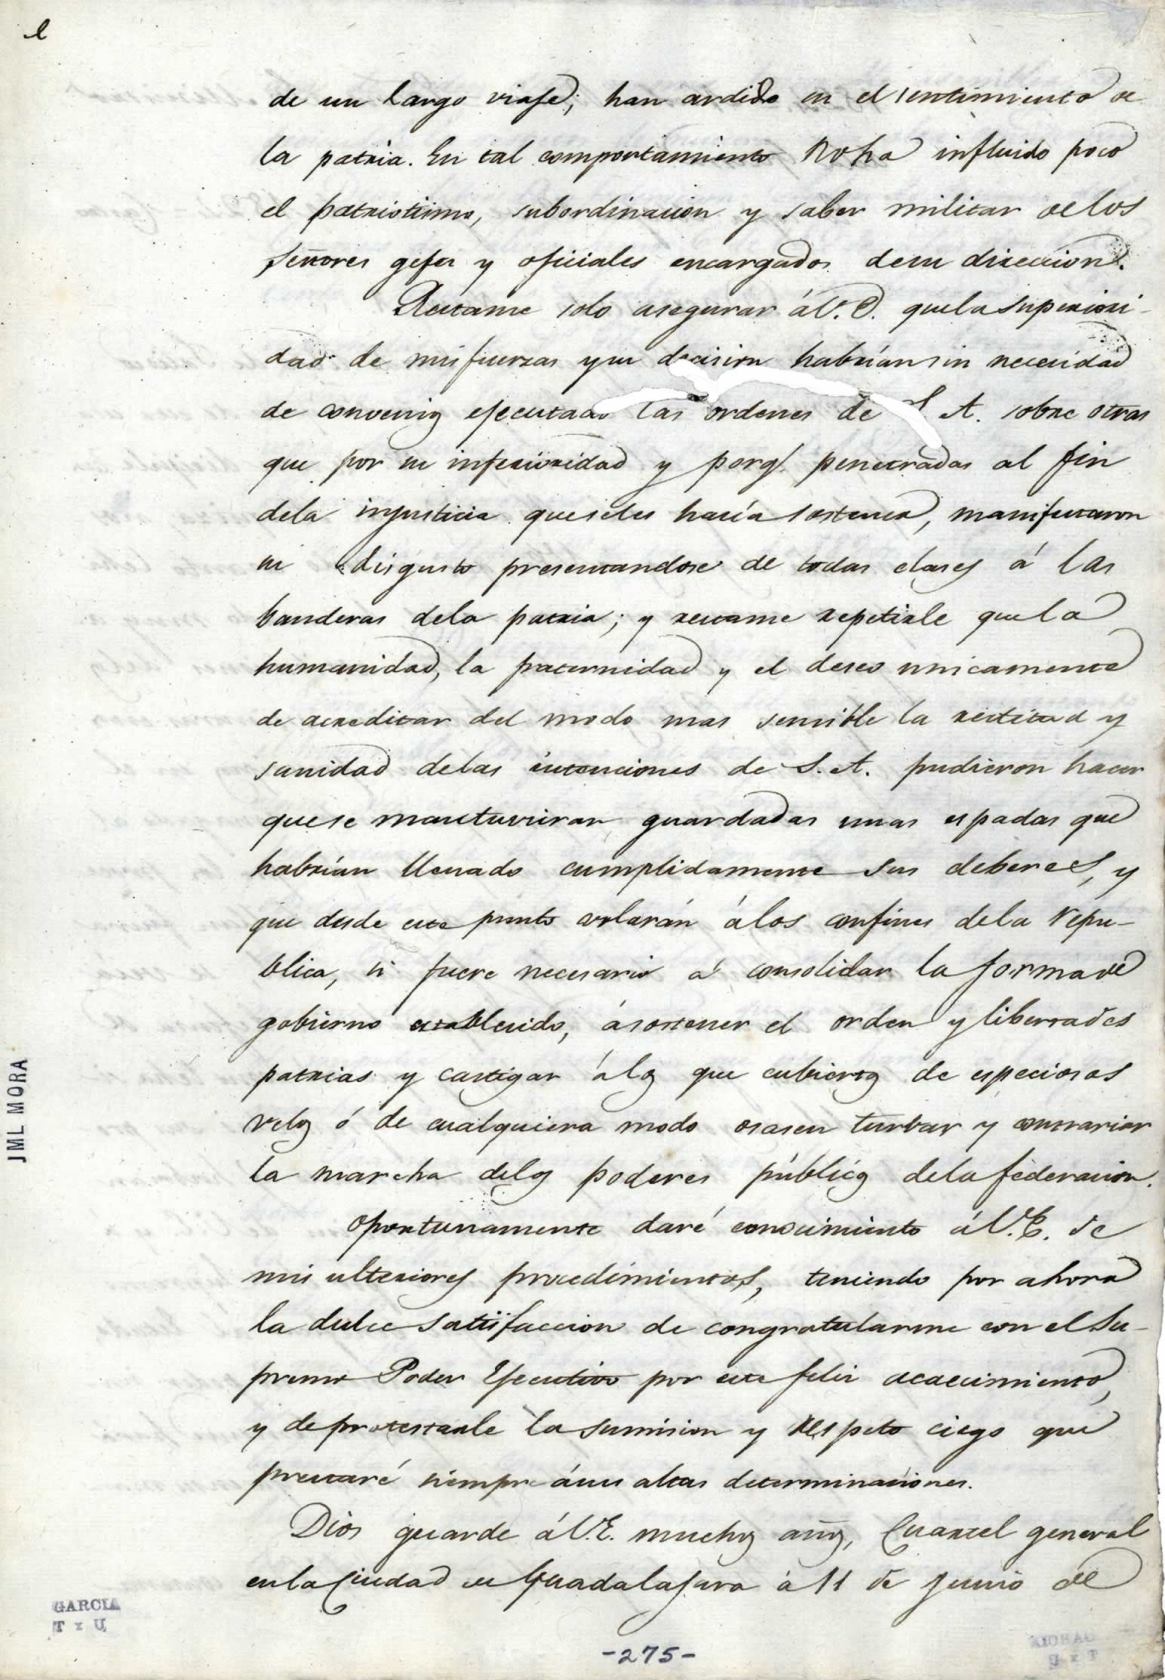 de un largo viage; han ardido en el sentimiento de
la patria. En tal comportamiento no ha influido poco
el patriotismo, subordinacion y saber militar de los
señores gefes y oficiales encargados de su direccion.
Restame solo asegurar á V.E. que la superiori-
dad de mis fuerzas y su decision habrian sin necesidad
de convenios ejecutado las ordenes de S. A. sobre otras
que por su inferioridad y porq. penetradas al fin
de la injusticia que seles hacía sostener, manifestaron
su disgusto presentandose de todas clases á las
banderas dela patria; y restame repetirle que la
humanidad, la fraternidad y el deseo unicamente
de acreditar del modo mas sensible la rectitud y
sanidad delas intenciones de S. A. pudieron hacer
que se mantuvieran guardadas unas espadas que
habrian llenado cumplidamente sus deberes, y
que desde este punto volarán á los confines dela Repu-
blica, si fuere necesario á consolidar la forma de
gobierno establecido, á sostener el orden y libertades
patrias y castigar á los que cubiertos de especiosos
velos ó de cualquiera modo osasen turbar y contrariar
la marcha delos poderes públicos dela federacion.
Oportunamente daré conocimiento á V.E. de
mis ulteriores procedimientos, teniendo por ahora
la dulce satisfaccion de congratularme con el Su-
premo Poder Ejecutivo por este feliz acaecimiento,
y de protestarle la sumision y respeto ciego que
prestaré siempre á sus altas determinaciones.
Dios guarde á V.E. muchos años, Cuartel general
en la Ciudad de Guadalajara á 11 de Junio de
JML MORA
GARCIA
T x U
-275-